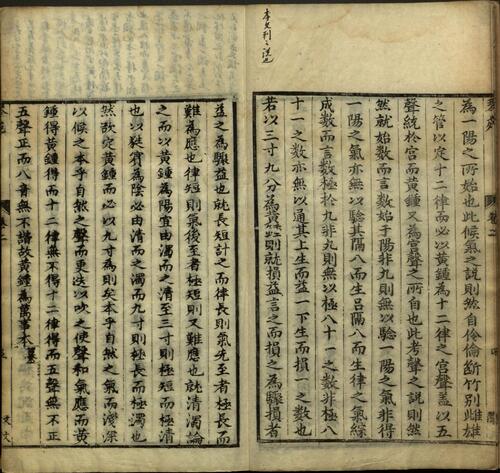 本文刊之誤也
為一陽之所始也此候氣之說則然自伶倫斷竹别雌雄
之管以定十二律而必以黃鍾為十二律之宮聲盖以五
聲統扵宮而黃鍾又為宮聲之所自也此考聲之說則然
然就始數而言數始于陽非九則無以驗一陽之氣非得
一陽之氣亦無以驗其隔八而生呂隔八而生律之氣綜
成數而言數極扵九非九則無以極八十一之數非極八
十一之數亦無以通其上生而益一下生而損一之數也
若以三寸九分為黃鍾則就損益言之而損之為驟損者
益之為驟益也就長短計之而律長則氣先至者極長而
難為應也律短則氣後至者極短則又難應也就清濁論
之而以黃鍾為陽宜由濁而之清至三寸則極短而極清
也以蕤賔為陰必由清而之濁而九寸則極長而極濁也
然欲定黃鍾而必以九寸為則矣本乎自然之氣而淺深
以候之本乎自然之聲而更迭以吹之使聲和氣應而黃
鍾得黃鍾得而十二律無不得十二律得而五聲無不正
五聲正而八音無不諧故黃鍾為萬事本